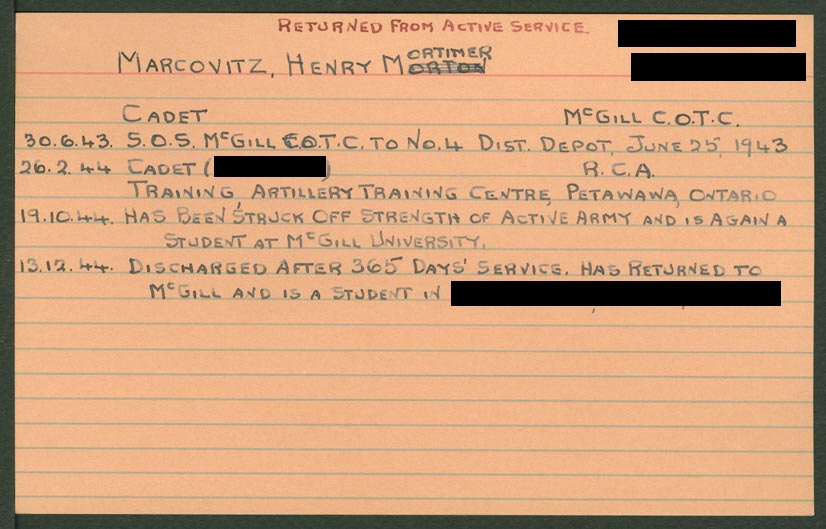 RETURNED FROM ACTIVE SERVICE.
MARCOVITZ, HENRY MORTIMER
CADET McGILL C.O.T.C.
30.6.43. S.O.S. McGILL C.O.T.C. TO NO.4 DIST. DEPOT, JUNE 25, 1943
26.2.44 CADET ( ) R.C.A.
TRAINING, ARTILLERY TRAINING CENTRE, PETAWAWA, ONTARIO
19.10.44. HAS BEEN STRUCK OFF STRENGTH OF ACTIVE ARMY AND IS AGAIN A
STUDENT AT McGILL UNIVERSITY.
13.12.44. DISCHARGED AFTER 365 DAYS' SERVICE. HAS RETURNED TO
McGILL AND IS A STUDENT IN